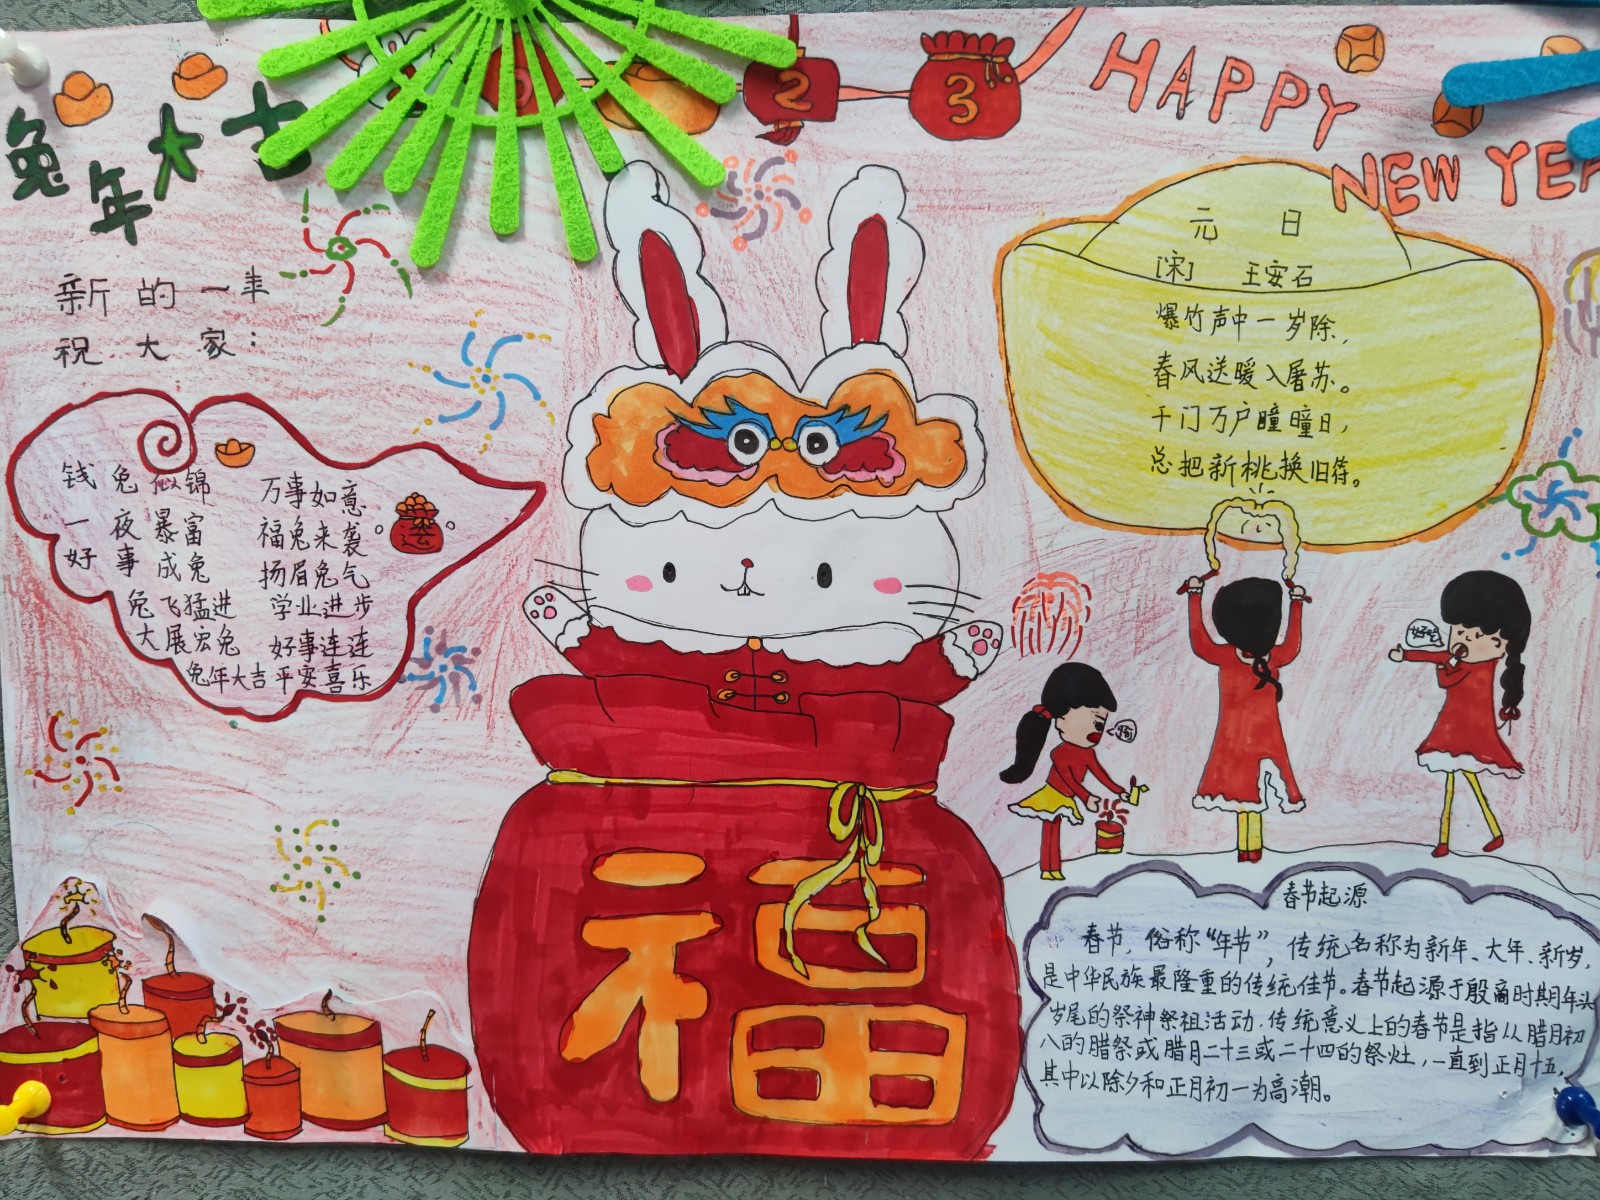 兔年大吉
2 3
HAPPY
NEW YEA
新的一年
祝大家：
钱兔似锦 万事如意
一夜暴富 福兔来袭
好事成兔 扬眉兔气
兔飞猛进 学业进步
大展宏兔 好事连连
兔年大吉 平安喜乐
元日
[宋] 王安石
爆竹声中一岁除，
春风送暖入屠苏。
千门万户瞳瞳日，
总把新桃换旧符。
福
春节起源
春节，俗称“年节”，传统名称为新年、大年、新岁，
是中华民族最隆重的传统佳节。春节起源于殷商时期年头
岁尾的祭神祭祖活动.传统意义上的春节是指从腊月初
八的腊祭或腊月二十三或二十四的祭灶，一直到正月十五，
其中以除夕和正月初一为高潮。